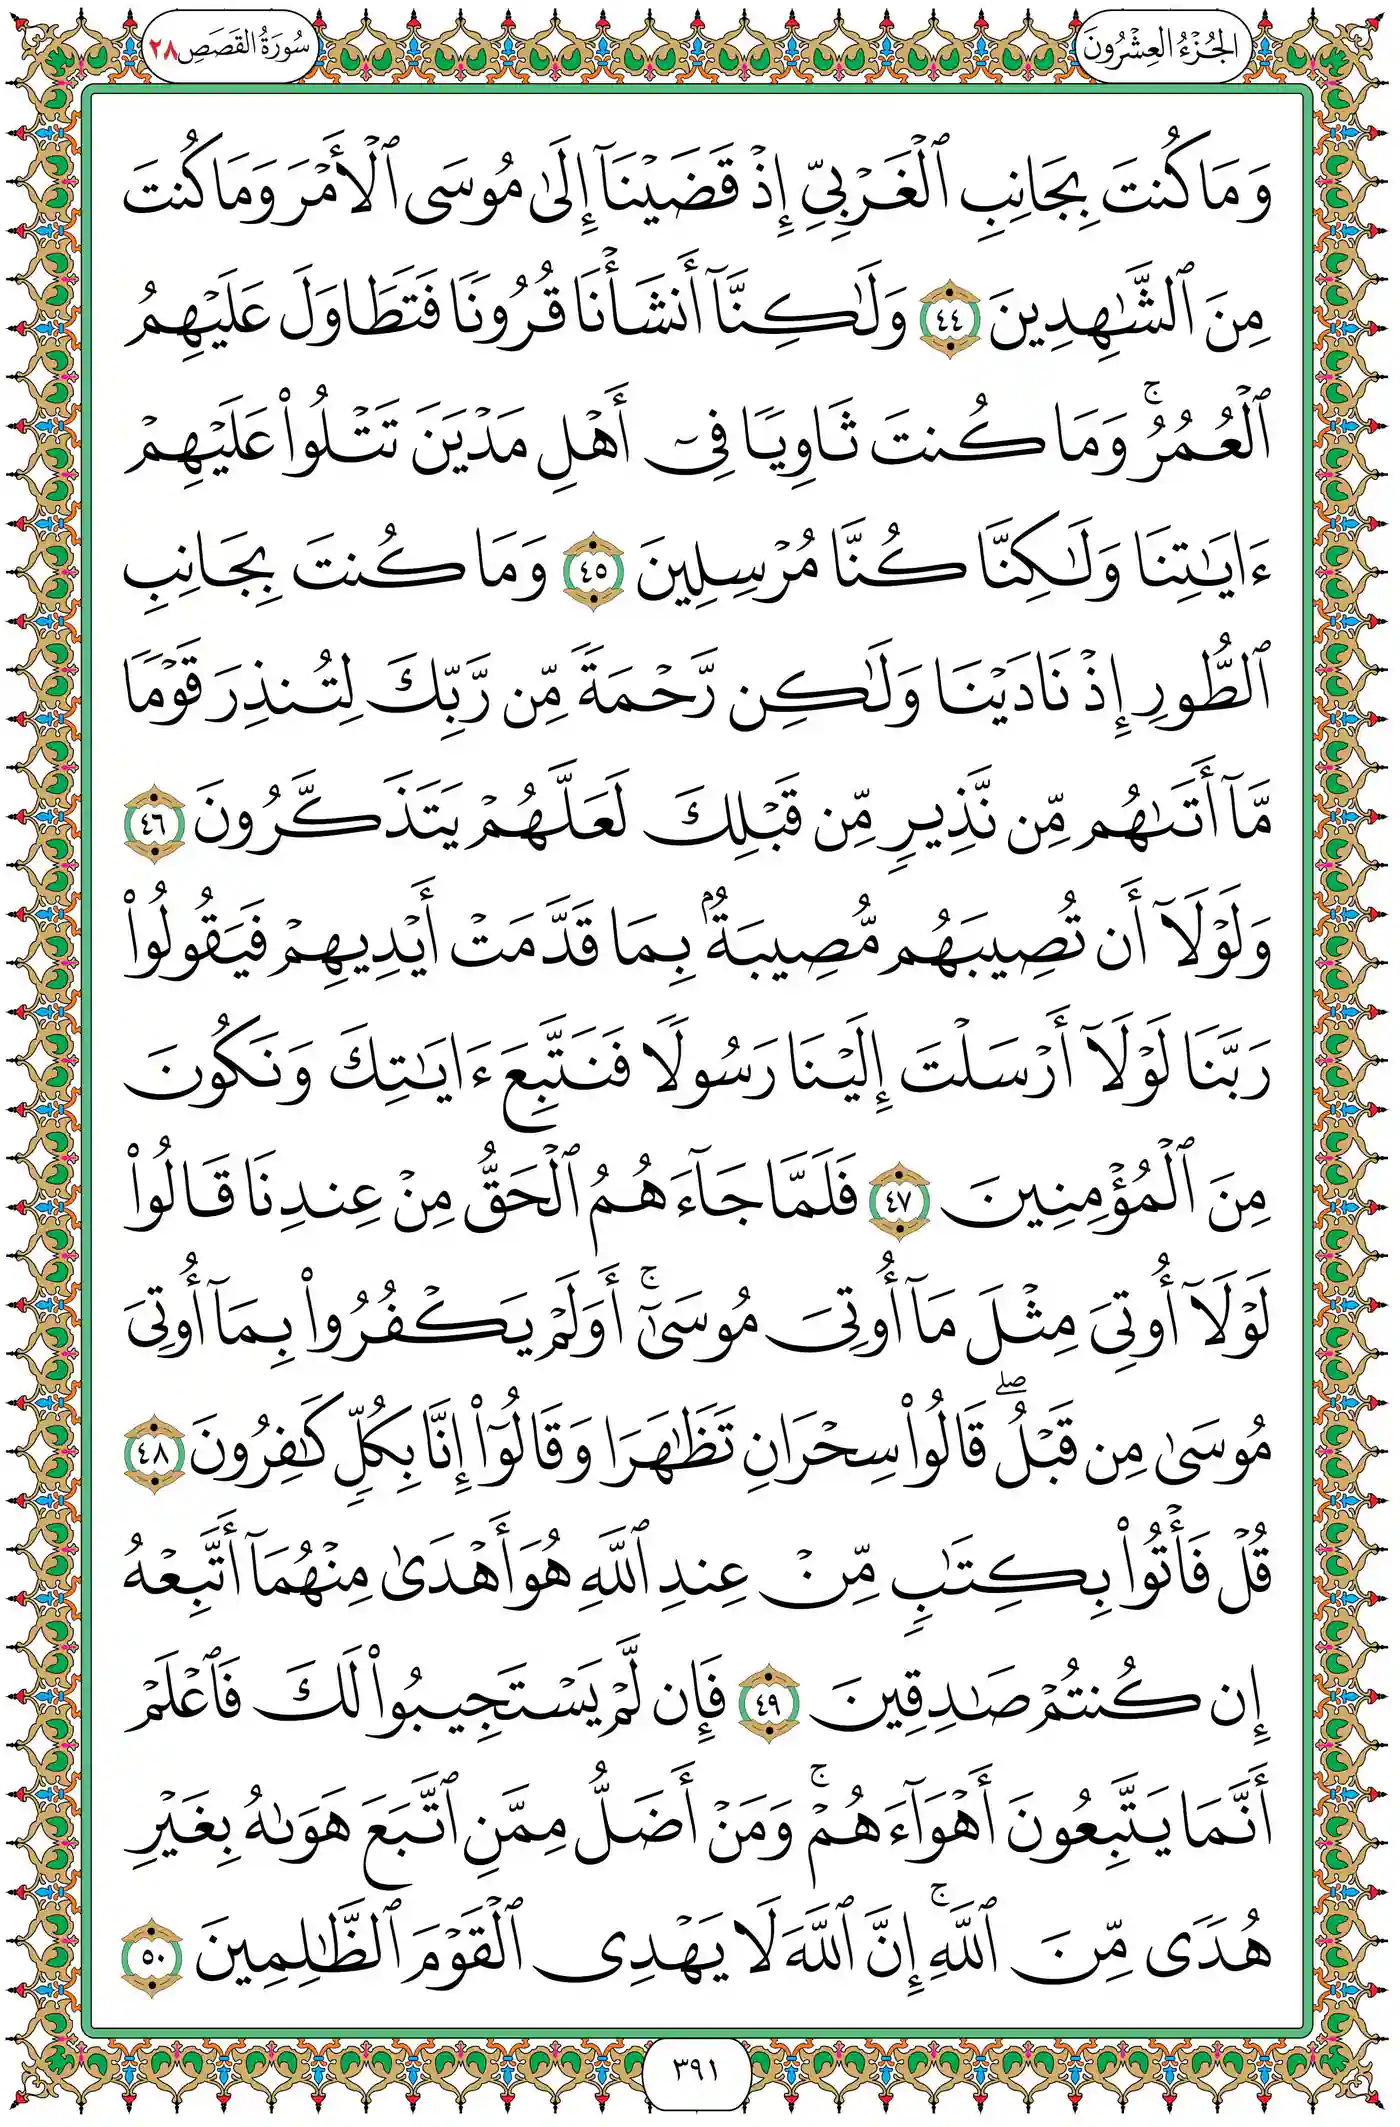 الجُزْءُ العِشْرُونَ
سُورَةُ القَصَصِ ٢٨
وَمَا كُنتَ بِجَانِبِ ٱلْغَرْبِيِّ إِذْ قَضَيْنَآ إِلَىٰ مُوسَى ٱلْأَمْرَ وَمَا كُنتَ
مِنَ ٱلشَّٰهِدِينَ ٤٤ وَلَٰكِنَّآ أَنشَأْنَا قُرُونًا فَتَطَاوَلَ عَلَيْهِمُ
ٱلْعُمُرُ ۚ وَمَا كُنتَ ثَاوِيًا فِىٓ أَهْلِ مَدْيَنَ تَتْلُوا۟ عَلَيْهِمْ
ءَايَٰتِنَا وَلَٰكِنَّا كُنَّا مُرْسِلِينَ ٤٥ وَمَا كُنتَ بِجَانِبِ
ٱلطُّورِ إِذْ نَادَيْنَا وَلَٰكِن رَّحْمَةً مِّن رَّبِّكَ لِتُنذِرَ قَوْمًا
مَّآ أَتَىٰهُم مِّن نَّذِيرٍ مِّن قَبْلِكَ لَعَلَّهُمْ يَتَذَكَّرُونَ ٤٦
وَلَوْلَآ أَن تُصِيبَهُم مُّصِيبَةٌۢ بِمَا قَدَّمَتْ أَيْدِيهِمْ فَيَقُولُوا۟
رَبَّنَا لَوْلَآ أَرْسَلْتَ إِلَيْنَا رَسُولًا فَنَتَّبِعَ ءَايَٰتِكَ وَنَكُونَ
مِنَ ٱلْمُؤْمِنِينَ ٤٧ فَلَمَّا جَآءَهُمُ ٱلْحَقُّ مِنْ عِندِنَا قَالُوا۟
لَوْلَآ أُوتِىَ مِثْلَ مَآ أُوتِىَ مُوسَىٰٓ ۚ أَوَلَمْ يَكْفُرُوا۟ بِمَآ أُوتِىَ
مُوسَىٰ مِن قَبْلُ ۖ قَالُوا۟ سِحْرَانِ تَظَٰهَرَا وَقَالُوٓا۟ إِنَّا بِكُلٍّ كَٰفِرُونَ ٤٨
قُلْ فَأْتُوا۟ بِكِتَٰبٍ مِّنْ عِندِ ٱللَّهِ هُوَ أَهْدَىٰ مِنْهُمَآ أَتَّبِعْهُ
إِن كُنتُمْ صَٰدِقِينَ ٤٩ فَإِن لَّمْ يَسْتَجِيبُوا۟ لَكَ فَٱعْلَمْ
أَنَّمَا يَتَّبِعُونَ أَهْوَآءَهُمْ ۚ وَمَنْ أَضَلُّ مِمَّنِ ٱتَّبَعَ هَوَىٰهُ بِغَيْرِ
هُدًى مِّنَ ٱللَّهِ ۚ إِنَّ ٱللَّهَ لَا يَهْدِى ٱلْقَوْمَ ٱلظَّٰلِمِينَ ٥٠
٣٩١